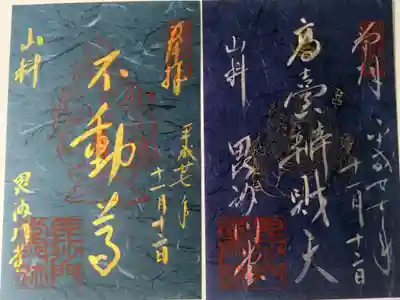 奉拝
平成廿七年
十一月十二日
高臺辨財天
山科
毘沙門堂
奉拝
平成廿七年
十一月十二日
不動尊
山科
毘沙門堂